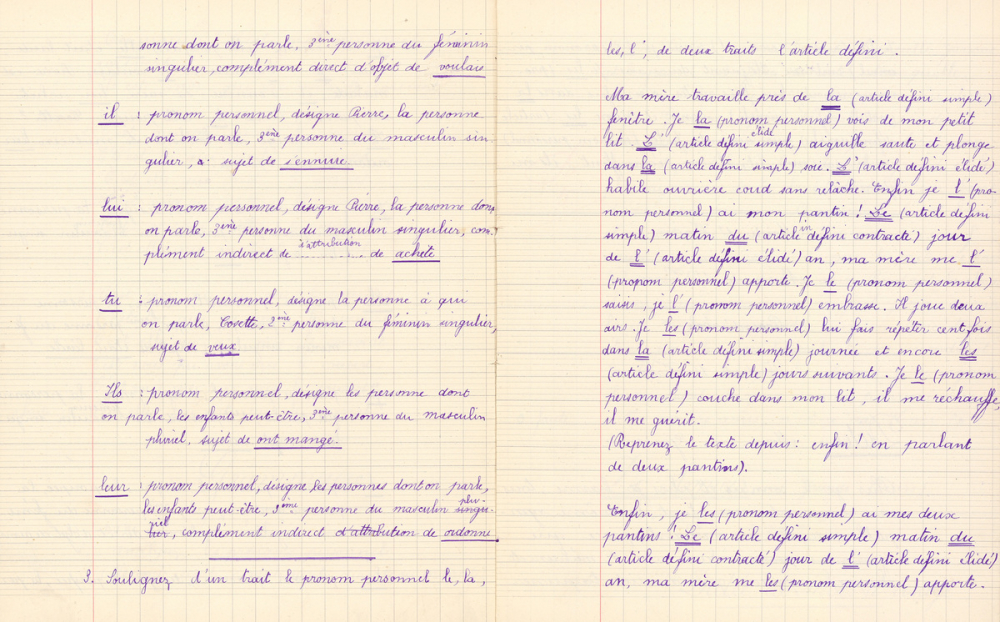 sonne dont on parle, 3ème personne du féminin
singulier, complément direct d'objet de voulais
il : pronom personnel, désigne Pierre, la personne
dont on parle, 3ème personne du masculin sin
gulier, sujet de s'ennuie
lui : pronom personnel, désigne Pierre, la personne dont
on parle, 3ème personne du masculin singulier, com-
plément indirect d'attribution de achète
tu : pronom personnel, désigne la personne à qui
on parle, Cosette, 2ème personne du féminin singulier,
sujet de veux
Ils : pronom personnel, désigne les personne dont
on parle, les enfants peut-être, 3ème personne du masculin
pluriel, sujet de ont mangé.
leur : pronom personnel, désigne les personnes dont on parle,
les enfants peut-être, 3ème personne du masculin singu- pluriel
lier, complément indirect d'attribution de ordonne
3. Soulignez d'un trait le pronom personnel le, la,
les, l', de deux traits l'article défini.
Ma mère travaille près de la (article défini simple)
fenêtre. Je la (pronom personnel) vois de mon petit
lit. L' (article défini simple élidé) aiguille saute et plonge
dans la (article défini simple) soie. L' (article défini élidé)
habile ouvrière coud sans relâche. Enfin je l' (pro-
nom personnel) ai mon pantin ! Le (article défini
simple) matin du (article indéfini contracté) jour
de l' (article défini élidé) an, ma mère me l'
(propnom personnel) apporte. Je le (pronom personnel)
saisis, je l' (pronom personnel) embrasse. Il joue deux
airs. Je les (pronom personnel) lui fais répéter cent fois
dans la (article défini simple) journée et encore les
(article défini simple) jours suivants. Je le (pronom
personnel) couche dans mon lit, il me réchauffe,
il me guérit.
(Reprenez le texte depuis : enfin ! en parlant
de deux pantins).
Enfin, je les (pronom personnel) ai mes deux
pantins ! Le (article défini simple) matin du
(article défini contracté) jour de l' (article défini élidé)
an, ma mère me les (pronom personnel) apporte.